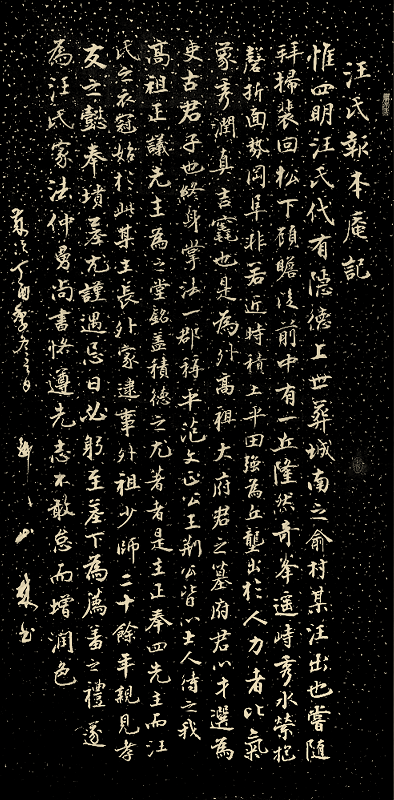 汪氏報本庵記
惟四明汪氏代有隱德上世葬城南之俞村某汪出也嘗隨
拜掃裴回松下顧瞻後前中有一丘隆然奇峯遥峙秀水縈抱
磬折面勢岡阜非若近時積土平田強為丘壟出於人力者比氣
象秀潤真吉竁也是為外高祖大府君之墓府君以才選為
吏古君子也終身掌法一郡稱平范文正公王荆公皆以士人待之我
高祖正議先生為之堂銘蓋積德之尤著者是生正奉四先生而汪
氏之衣冠始於此某生長外家逮事外祖少師二十餘年親見孝
友之懿奉墳墓尤謹遇忌日必躬至墓下為薦羞之禮遂
為汪氏家法仲舅尚書恪遵先志不敢怠而增潤色
歲次丁酉季冬